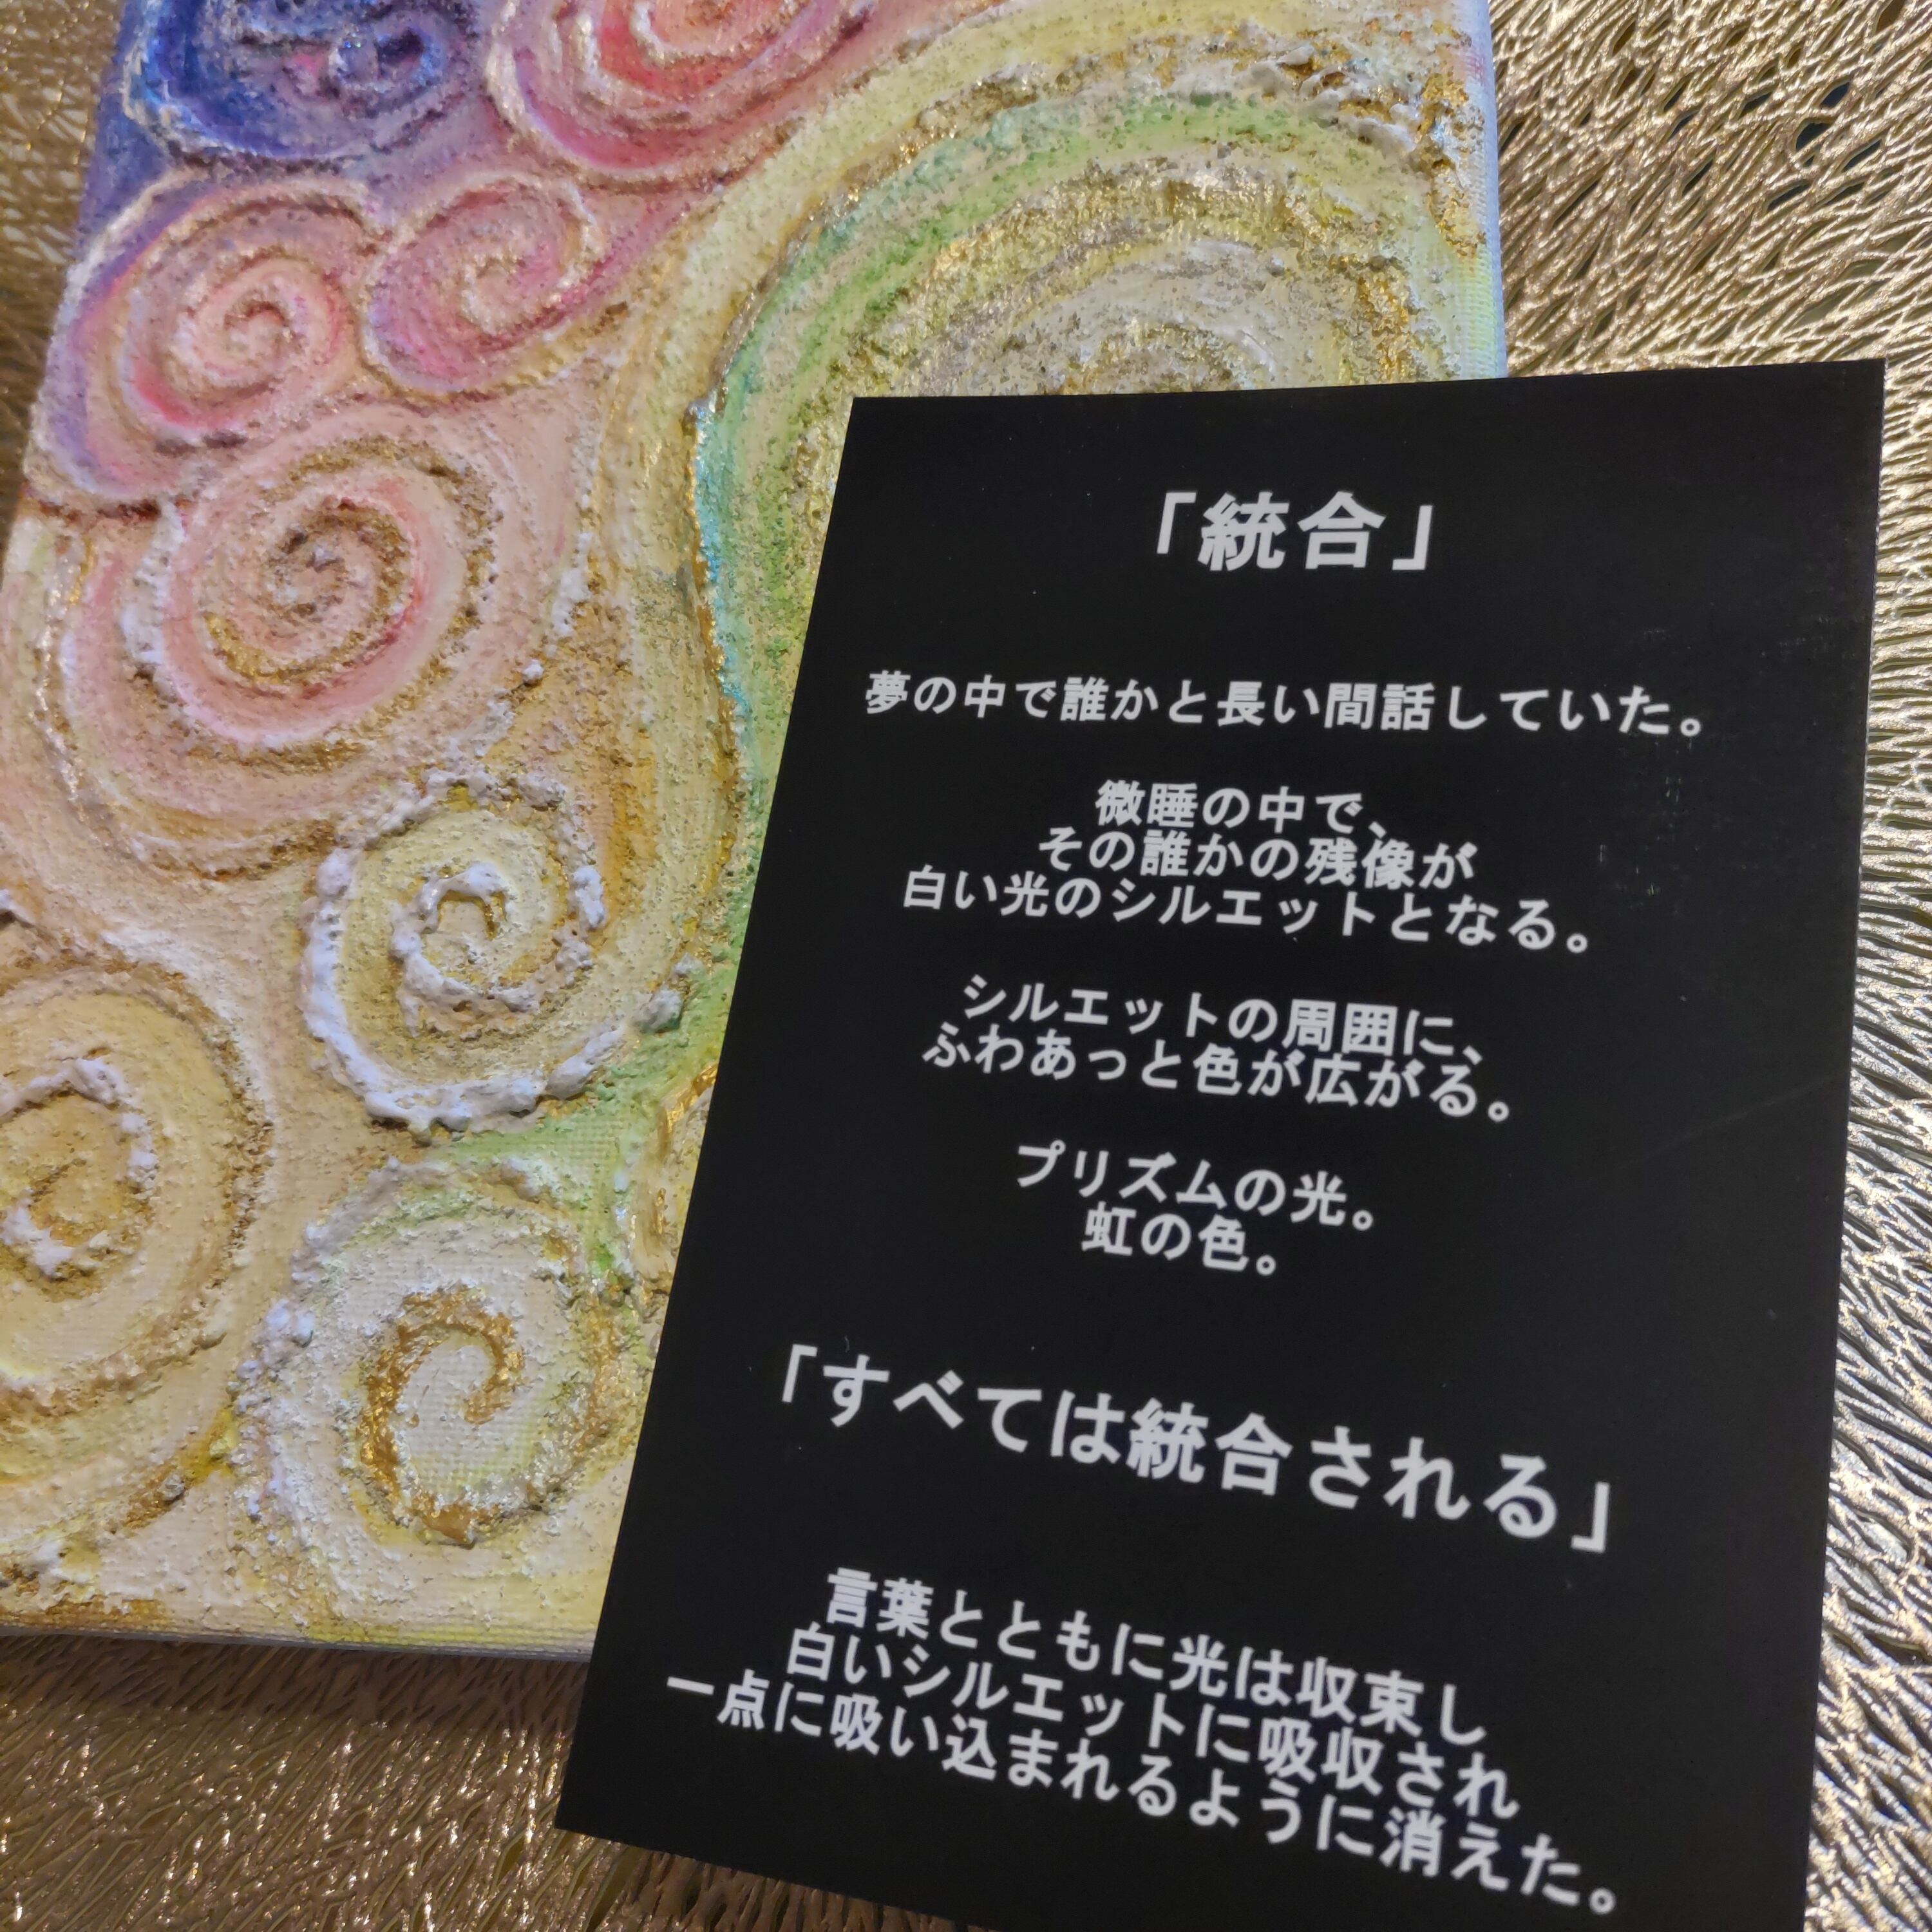 「統合」
夢の中で誰かと長い間話していた。
微睡の中で、
その誰かの残像が
白い光のシルエットとなる。
シルエットの周囲に、
ふわあっと色が広がる。
プリズムの光。
虹の色。
「すべては統合される」
言葉とともに光は収束し
白いシルエットに吸収され
一点に吸い込まれるように消えた。